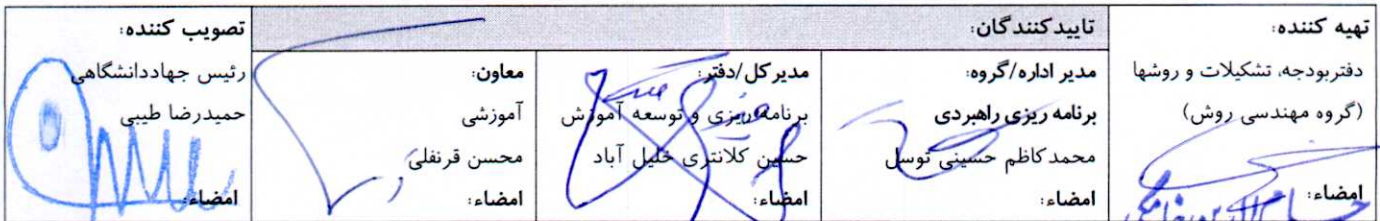 تهیه کننده:
دفتربودجه، تشکیلات و روشها
(گروه مهندسی روش)
امضاء:
تاییدکنندگان:
مدیر اداره/گروه:
برنامه ریزی راهبردی
محمدکاظم حسینی توسل
امضاء:
مدیرکل/دفتر:
برنامه ریزی و توسعه آموزش
حسین کلانتری خلیل آباد
امضاء:
معاون:
آموزشی
محسن قرنفلی
امضاء:
تصویب کننده:
رئیس جهاددانشگاهی
حمیدرضا طیبی
امضاء: